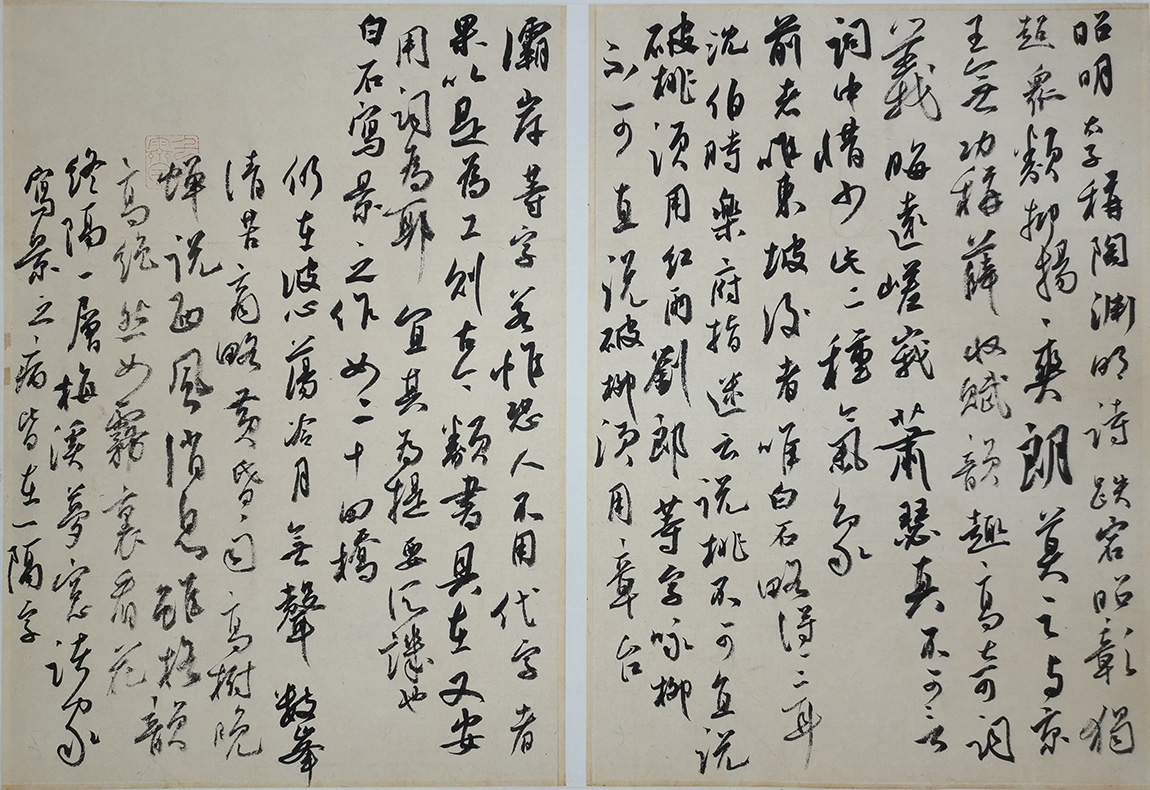 昭明太子稱陶渊明詩跌宕昭彰獨
超眾類抑揚爽朗莫之与京
王無功稱薛收賦韻趣高奇詞
義晦遠嵯峨蕭瑟真不可言
詞中惜少此二種氣象
前者唯東坡後者唯白石略得一二耳
沈伯時樂府指迷云說桃不可直說
破桃須用紅雨劉郎等字咏柳
不可直說破柳須用章台
灞岸等字若惟恐人不用代字者
果以是為工則古今類書具在又安
用詞為耶 宜其為提要所譏也
白石寫景之作如二十四橋
仍在波心蕩冷月無聲 數峯
清苦商略黃昏雨 高樹晚
蟬說西風消息雖格韻
高絕然如霧裏看花
終隔一層梅溪夢窗諸家
寫景之病皆在一隔字